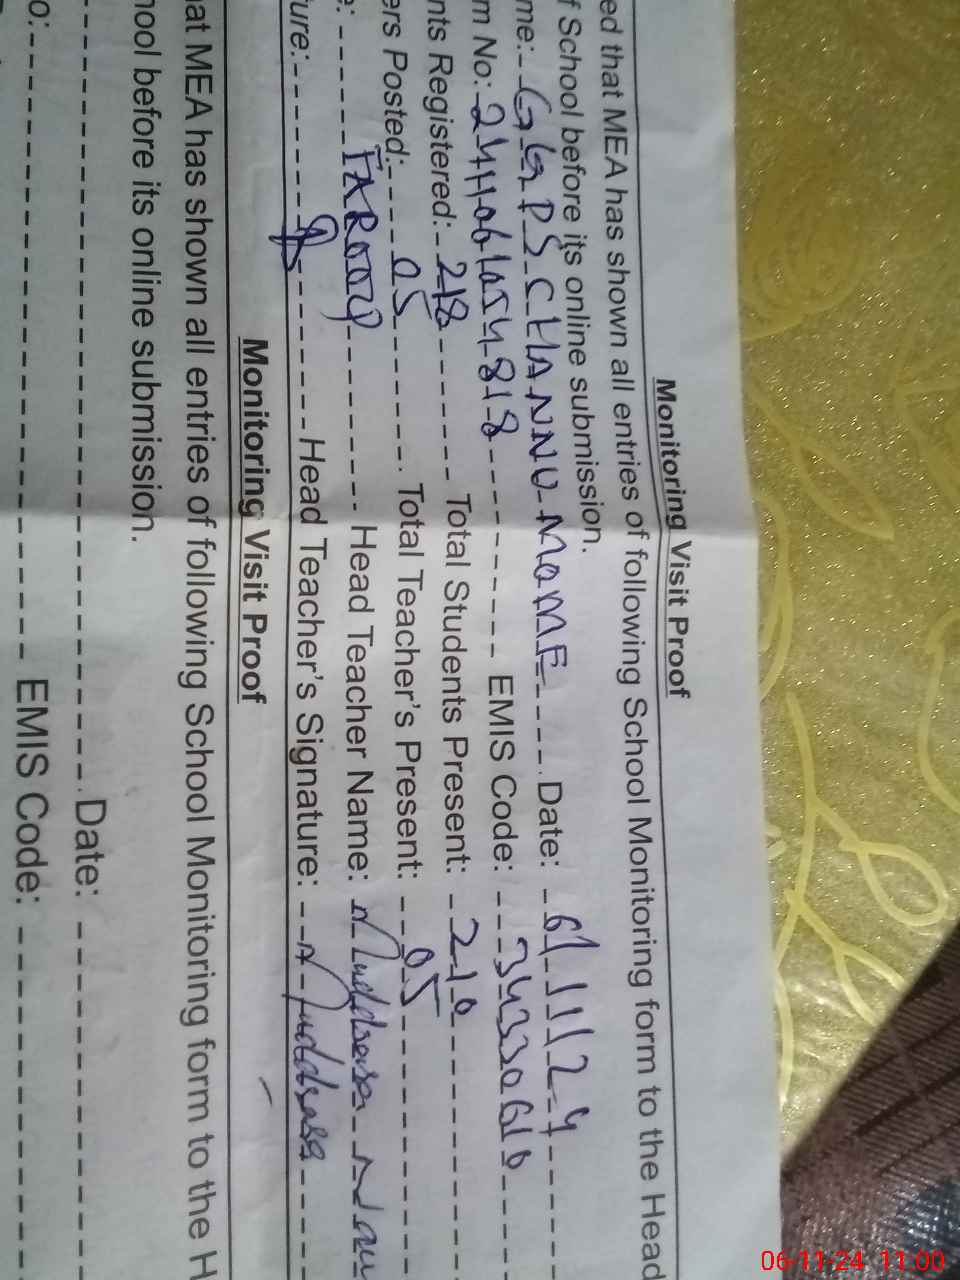 Monitoring Visit Proof
ed that MEA has shown all entries of following School Monitoring form to the Head
f School before its online submission.
me:- GGPS CHANNU MOMF Date: 6/11/24
m No: EMIS Code: 34330610
nts Registered: 218 Total Students Present: 210
ers Posted: 05 Total Teacher's Present: 05
e: FAROOQ Head Teacher Name: Muddsesa
ure: Head Teacher's Signature: Muddsasa
Monitoring Visit Proof
at MEA has shown all entries of following School Monitoring form to the H
hool before its online submission.
Date:
o: EMIS Code:
06-11-24 11:00